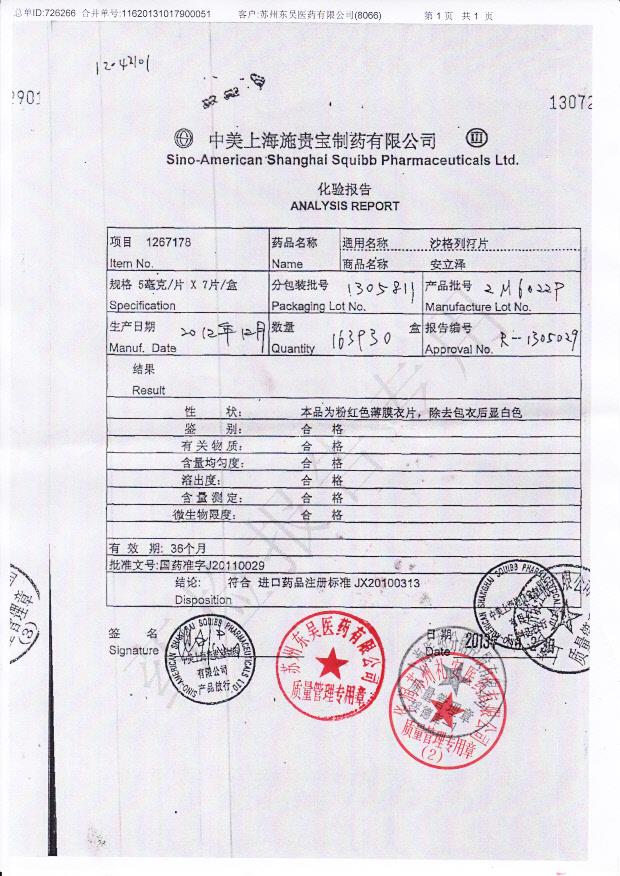 总单ID:726266 合并单号:11620131017900051 客户:苏州东吴医药有限公司(8066) 第 1 页 共 1 页
12-42101
2901
13072
中美上海施贵宝制药有限公司
Sino-American Shanghai Squibb Pharmaceuticals Ltd.
化验报告
ANALYSIS REPORT
项目 1267178 药品名称 通用名称 沙格列汀片
Item No. Name 商品名称 安立泽
规格 5毫克/片 X 7片/盒 分包装批号 1305811 产品批号 2M6022P
Specification Packaging Lot No. Manufacture Lot No.
生产日期 2012年12月 数量 163930 盒 报告编号 R-1305029
Manuf. Date Quantity Approval No.
结果
Result
性 状: 本品为粉红色薄膜衣片，除去包衣后显白色
鉴 别: 合 格
有关物质: 合 格
含量均匀度: 合 格
溶出度: 合 格
含量测定: 合 格
微生物限度: 合 格
有 效 期: 36个月
批准文号:国药准字J20110029
结论: 符合 进口药品注册标准 JX20100313
Disposition
签 名 日 期 2013
Signature Date
SINO-AMERICAN SHANGHAI SQUIBB PHARMACEUTICAL LTD.
有限公司
产品放行
苏州东吴医药有限公司
质量管理专用章
质量管理专用章
(2)
管理章
(3)